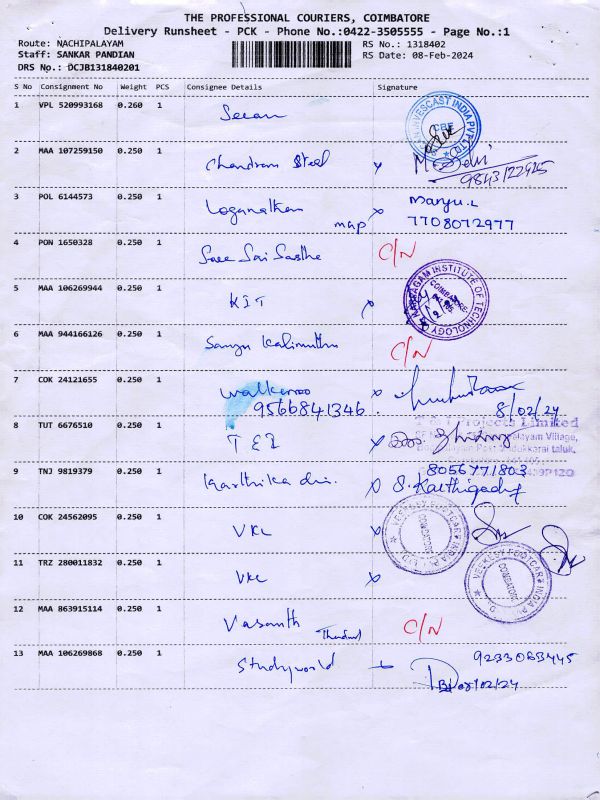 THE PROFESSIONAL COURIERS, COIMBATORE
Delivery Runsheet - PCK - Phone No.:0422-3505555 - Page No.:1
Route: NACHIPALAYAM RS No.: 1318402
Staff: SANKAR PANDIAN RS Date: 08-Feb-2024
DRS No.: DCJB131840201
S No Consignment No Weight PCS Consignee Details Signature
1 VPL 520993168 0.260 1
2 MAA 107259150 0.250 1 Chandram Steel
3 POL 6144573 0.250 1 Loganathan map Manju.L
7708072977
4 PON 1650328 0.250 1 Sree Sai Sasthe C/N
5 MAA 106269944 0.250 1 KIT INSTITUTE OF TECHNOLOGY COIMBATORE
6 MAA 944166126 0.250 1 Sanju Kalimuthu C/N
7 COK 24121655 0.250 1 Walkaroo
9566841346. 8/02/24
8 TUT 6676510 0.250 1 Projects Limited
9 TNJ 9819379 0.250 1 Karthika dri. 8056771803
S. Karthigadevi
10 COK 24562095 0.250 1 VKC VEEKESY FOOTCARE INDIA COIMBATORE
11 TRZ 280011832 0.250 1 VKC VEEKESY FOOTCARE INDIA COIMBATORE
12 MAA 863915114 0.250 1 Vasanth C/N
13 MAA 106269868 0.250 1 Studyworld 9233063445